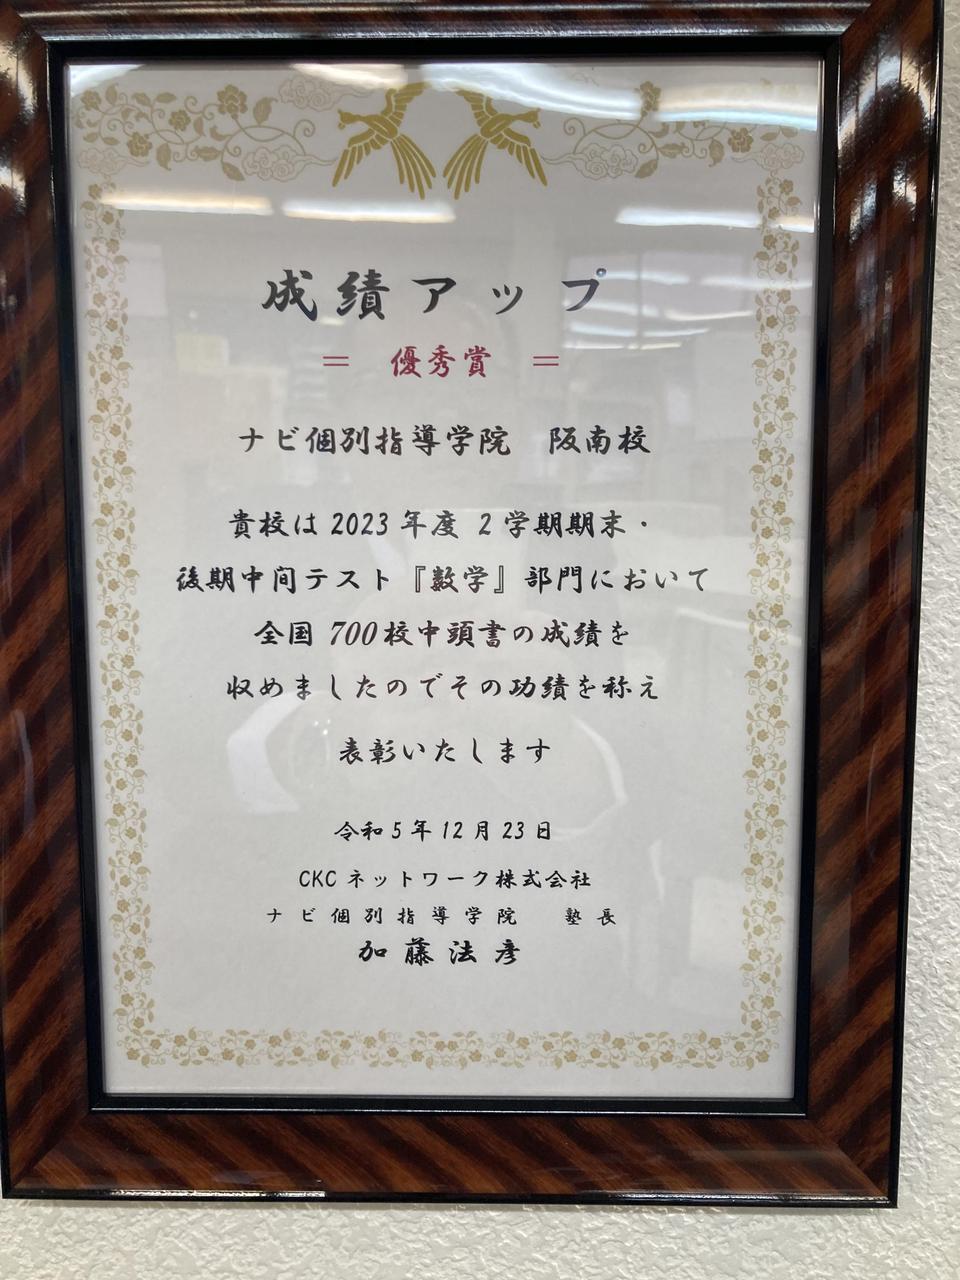 成績アップ
＝ 優秀賞 ＝
ナビ個別指導学院 阪南校
貴校は 2023 年度 2 学期期末・
後期中間テスト『数学』部門において
全国 700校中頭書の成績を
収めましたのでその功績を称え
表彰いたします
令和 5 年 12 月 23 日
CKC ネットワーク株式会社
ナビ個別指導学院 塾長
加藤法彦